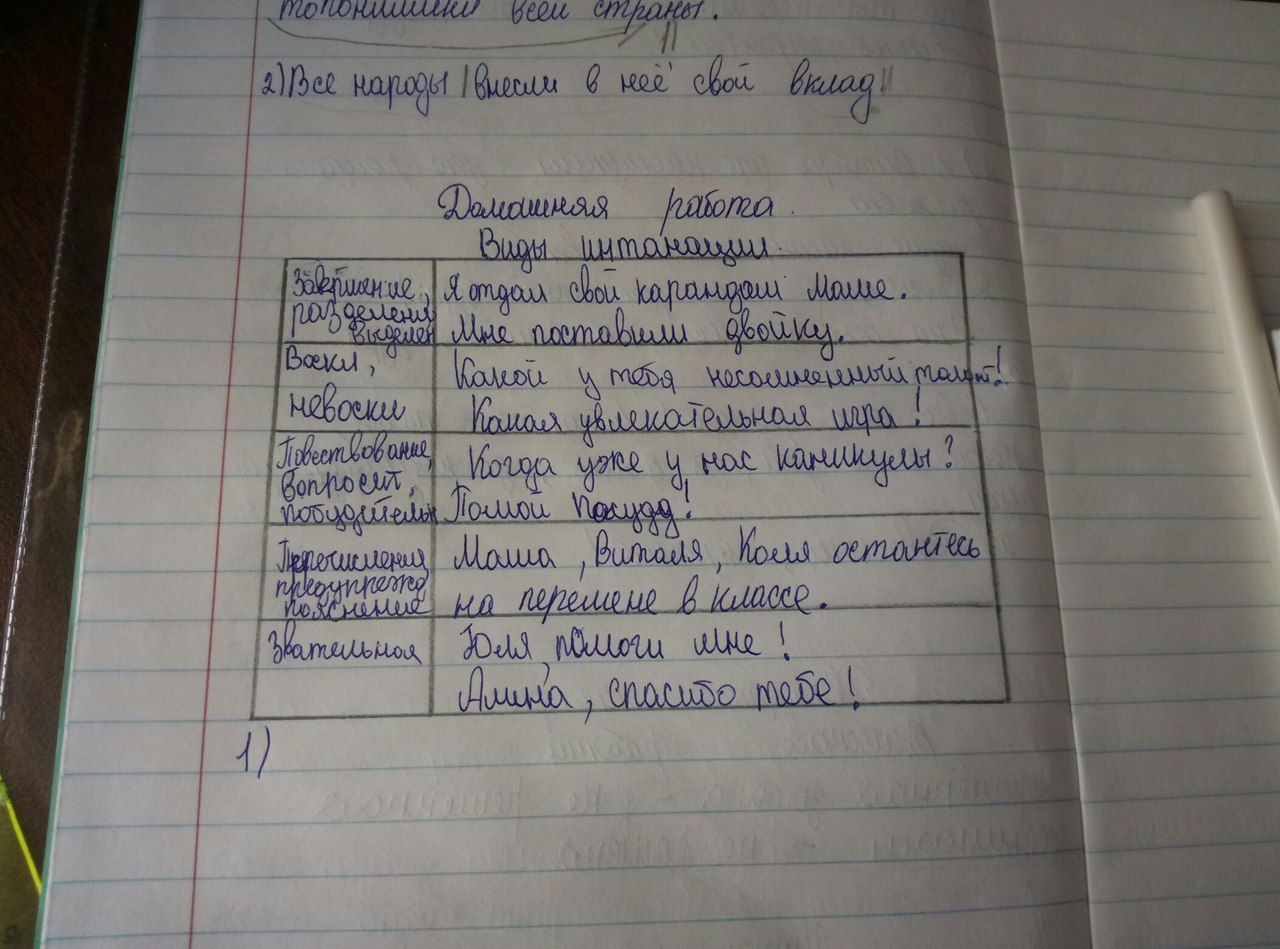 топонимики всей страны.
2) Все народы | внесли в неё свой вклад ||
Домашняя работа.
Виды интанации.
Завершение,
разделения
выделен
Я отдал свой карандаш Маше.
Мне поставили двойку.
Воскл,
невоскл
Какой у тебя несомненный талант!
Какая увлекательная игра!
Повествование,
вопросит,
побудительн
Когда уже у нас каникулы?
Помой посуду!
Перечисления
предупрежд
пояснение
Маша, Виталя, Коля остантесь
на перемене в классе.
Звательная
Юля, помоги мне!
Алина, спасибо тебе!
1)